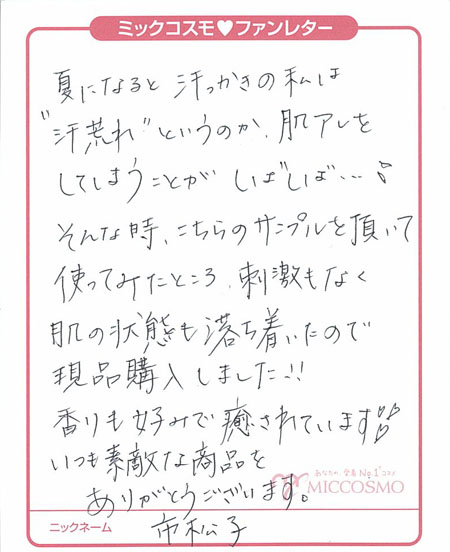 ミックコスモ♥ファンレター
夏になると 汗っかきの私は
"汗荒れ"というのか、肌アレを
してしまうことが しばしば…
そんな時、こちらのサンプルを頂いて
使ってみたところ、刺激もなく
肌の状態も落ち着いたので
現品購入しました!!
香りも好みで癒されています
いつも素敵な商品を
ありがとうございます。
あなたの、愛着No.1コスメ
MICCOSMO
ニックネーム
市松子